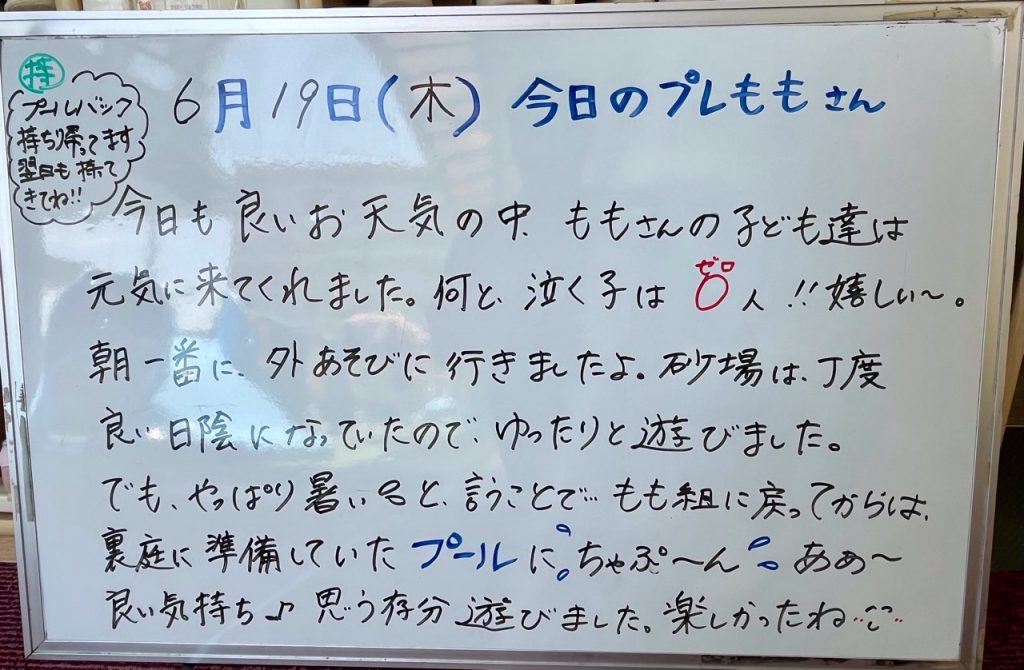 持
プールバック
持ち帰ってます
翌日も持って
きてね!!
6月19日(木) 今日のプレももさん
今日も良いお天気の中、ももさんの子ども達は
元気に来てくれました。何と、泣く子は0人!!嬉しい〜。
ゼロ
朝一番に、外あそびに行きましたよ。砂場は、丁度
良い日陰になっていたので、ゆったりと遊びました。
でも、やっぱり暑い〜と、言うことで…もも組に戻ってからは、
裏庭に準備していたプールにちゃぷ〜ん あぁ〜
良い気持ち♪ 思う存分遊びました。楽しかったね